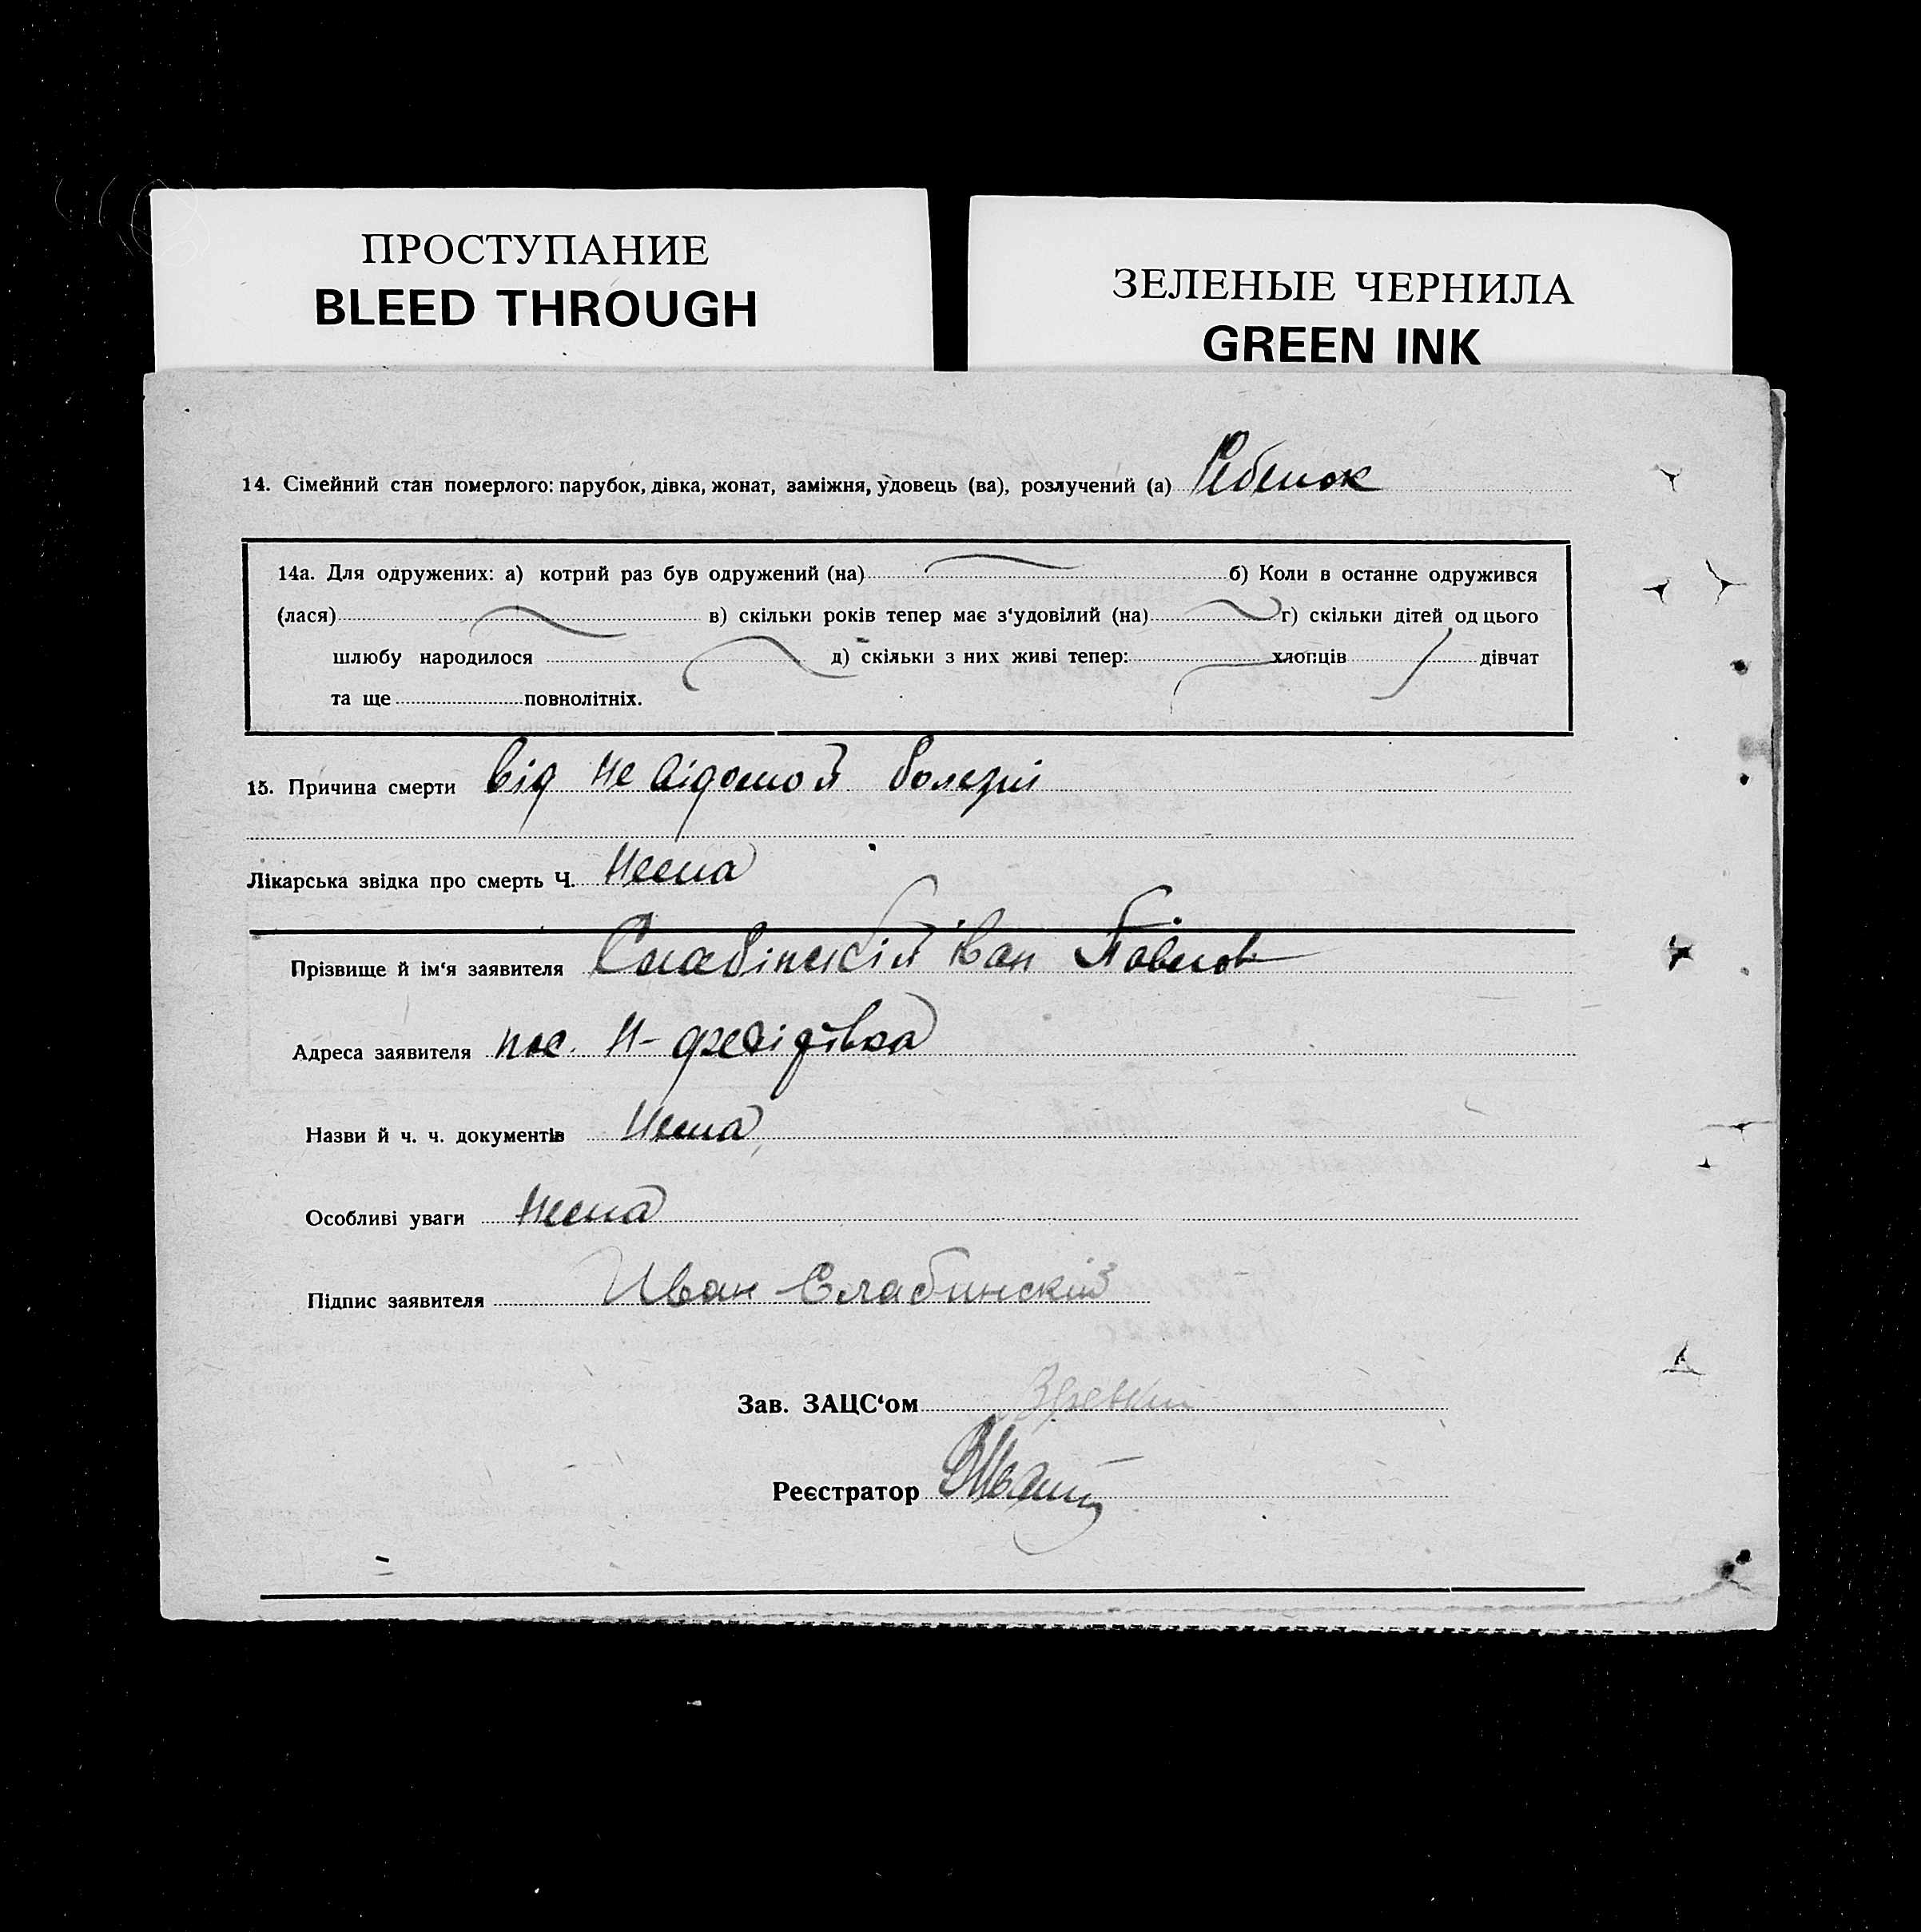 ПРОСТУПАНИЕ
BLEED THROUGH
ЗЕЛЕНЫЕ ЧЕРНИЛА
GREEN INK
14. Сімейний стан померлого: парубок, дівка, жонат, заміжня, удовець (ва), розлучений (а) Ребенок
14а. Для одружених: а) котрий раз був одружений (на) б) Коли в останне одружився
(лася) в) скільки років тепер має з‘удовілий (на) г) скільки дітей од цього
шлюбу народилося д) скільки з них живі тепер: хлопців дівчат
та ще повнолітніх.
15. Причина смерти від не відомой болезні
Лікарська звідка про смерть Ч. Нема
Прізвище й ім‘я заявителя Слабінскій Іван Павлов
Адреса заявителя пос.
Назви й ч. ч. документів Нема
Особливі уваги Нема
Підпис заявителя Иван Слабинскій
Зав. ЗАЦС‘ом
Реєстратор